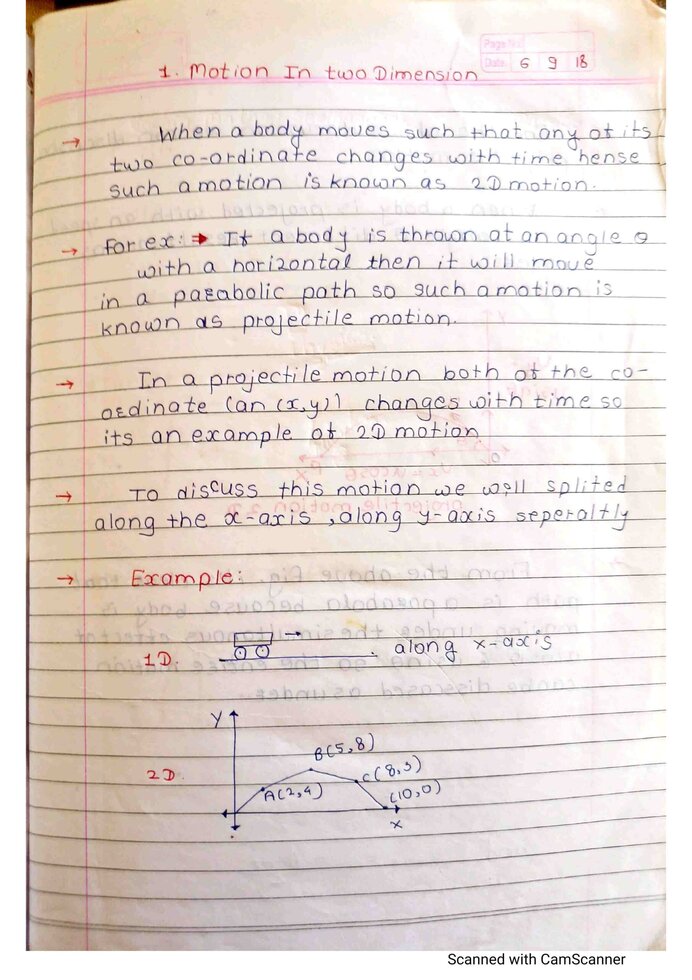 Page No.
Date: 6 9 18
1. Motion In two Dimension
→ When a body moves such that any of its
two co-ordinate changes with time hense
such a motion is known as 2D motion.
→ for ex: → If a body is thrown at an angle θ
with a horizontal then it will move
in a parabolic path so such a motion is
known as projectile motion.
→ In a projectile motion both of the co-
ordinate (an (x,y)) changes with time so
its an example of 2D motion
→ To discuss this motion we will splited
along the x-axis , along y-axis seperaltly
→ Example:
1D. → along x-axis
Y
2D. A(2,4) B(5,8) C(8,5) (10,0)
x
Scanned with CamScanner